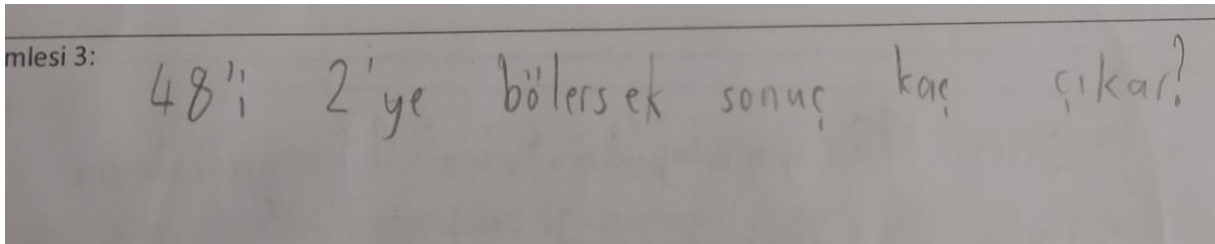 mlesi 3: 48'i 2'ye bölersek sonuç kaç çıkar?